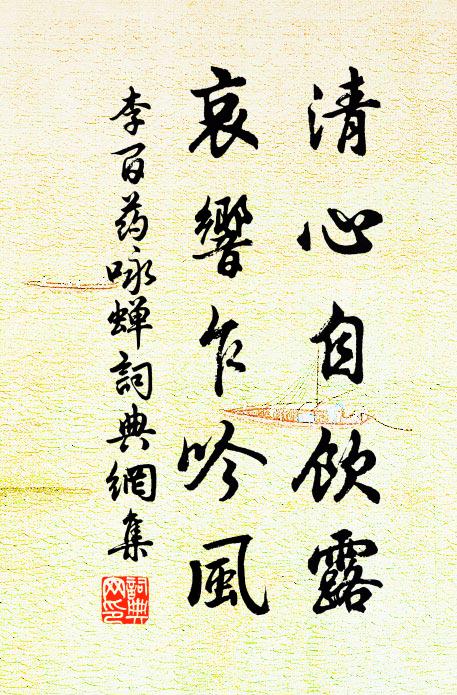 清心自飲露
哀響乍吟風
李百药咏蝉詞典網集
詞典網印